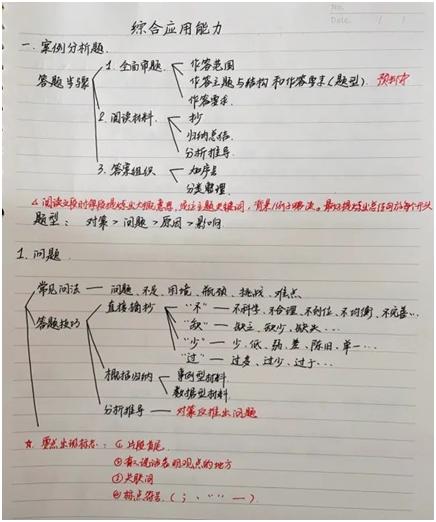 No.
Date. / /
综合应用能力
一.案例分析题.
答题步骤
1. 全面审题.
作答范围
作答主题与结构和作答要求(题型).
作答要求.
2. 阅读材料.
抄
归纳总结.
分析推导.
3. 答案组织
加序号
分类整理.
题型: 对策 > 问题 > 原因 > 影响.
1. 问题.
常见问法 — 问题、不足、困境、瓶颈、挑战、难点
答题技巧
直接摘抄
"不" — 不科学、不合理、不到位、不均衡、不完善…
"缺" — 缺乏、缺少、缺失…
"少" — 少、低、弱、差、陈旧、单一…
"过" — 过多、过少、过于…
根据归纳
案例型材料
数据型材料.
分析推导 — 对策反推出问题
☆ 要点出现标志:
① 片段首尾.
③ 关联词
④ 标点符号. ( ; 、 " " — )